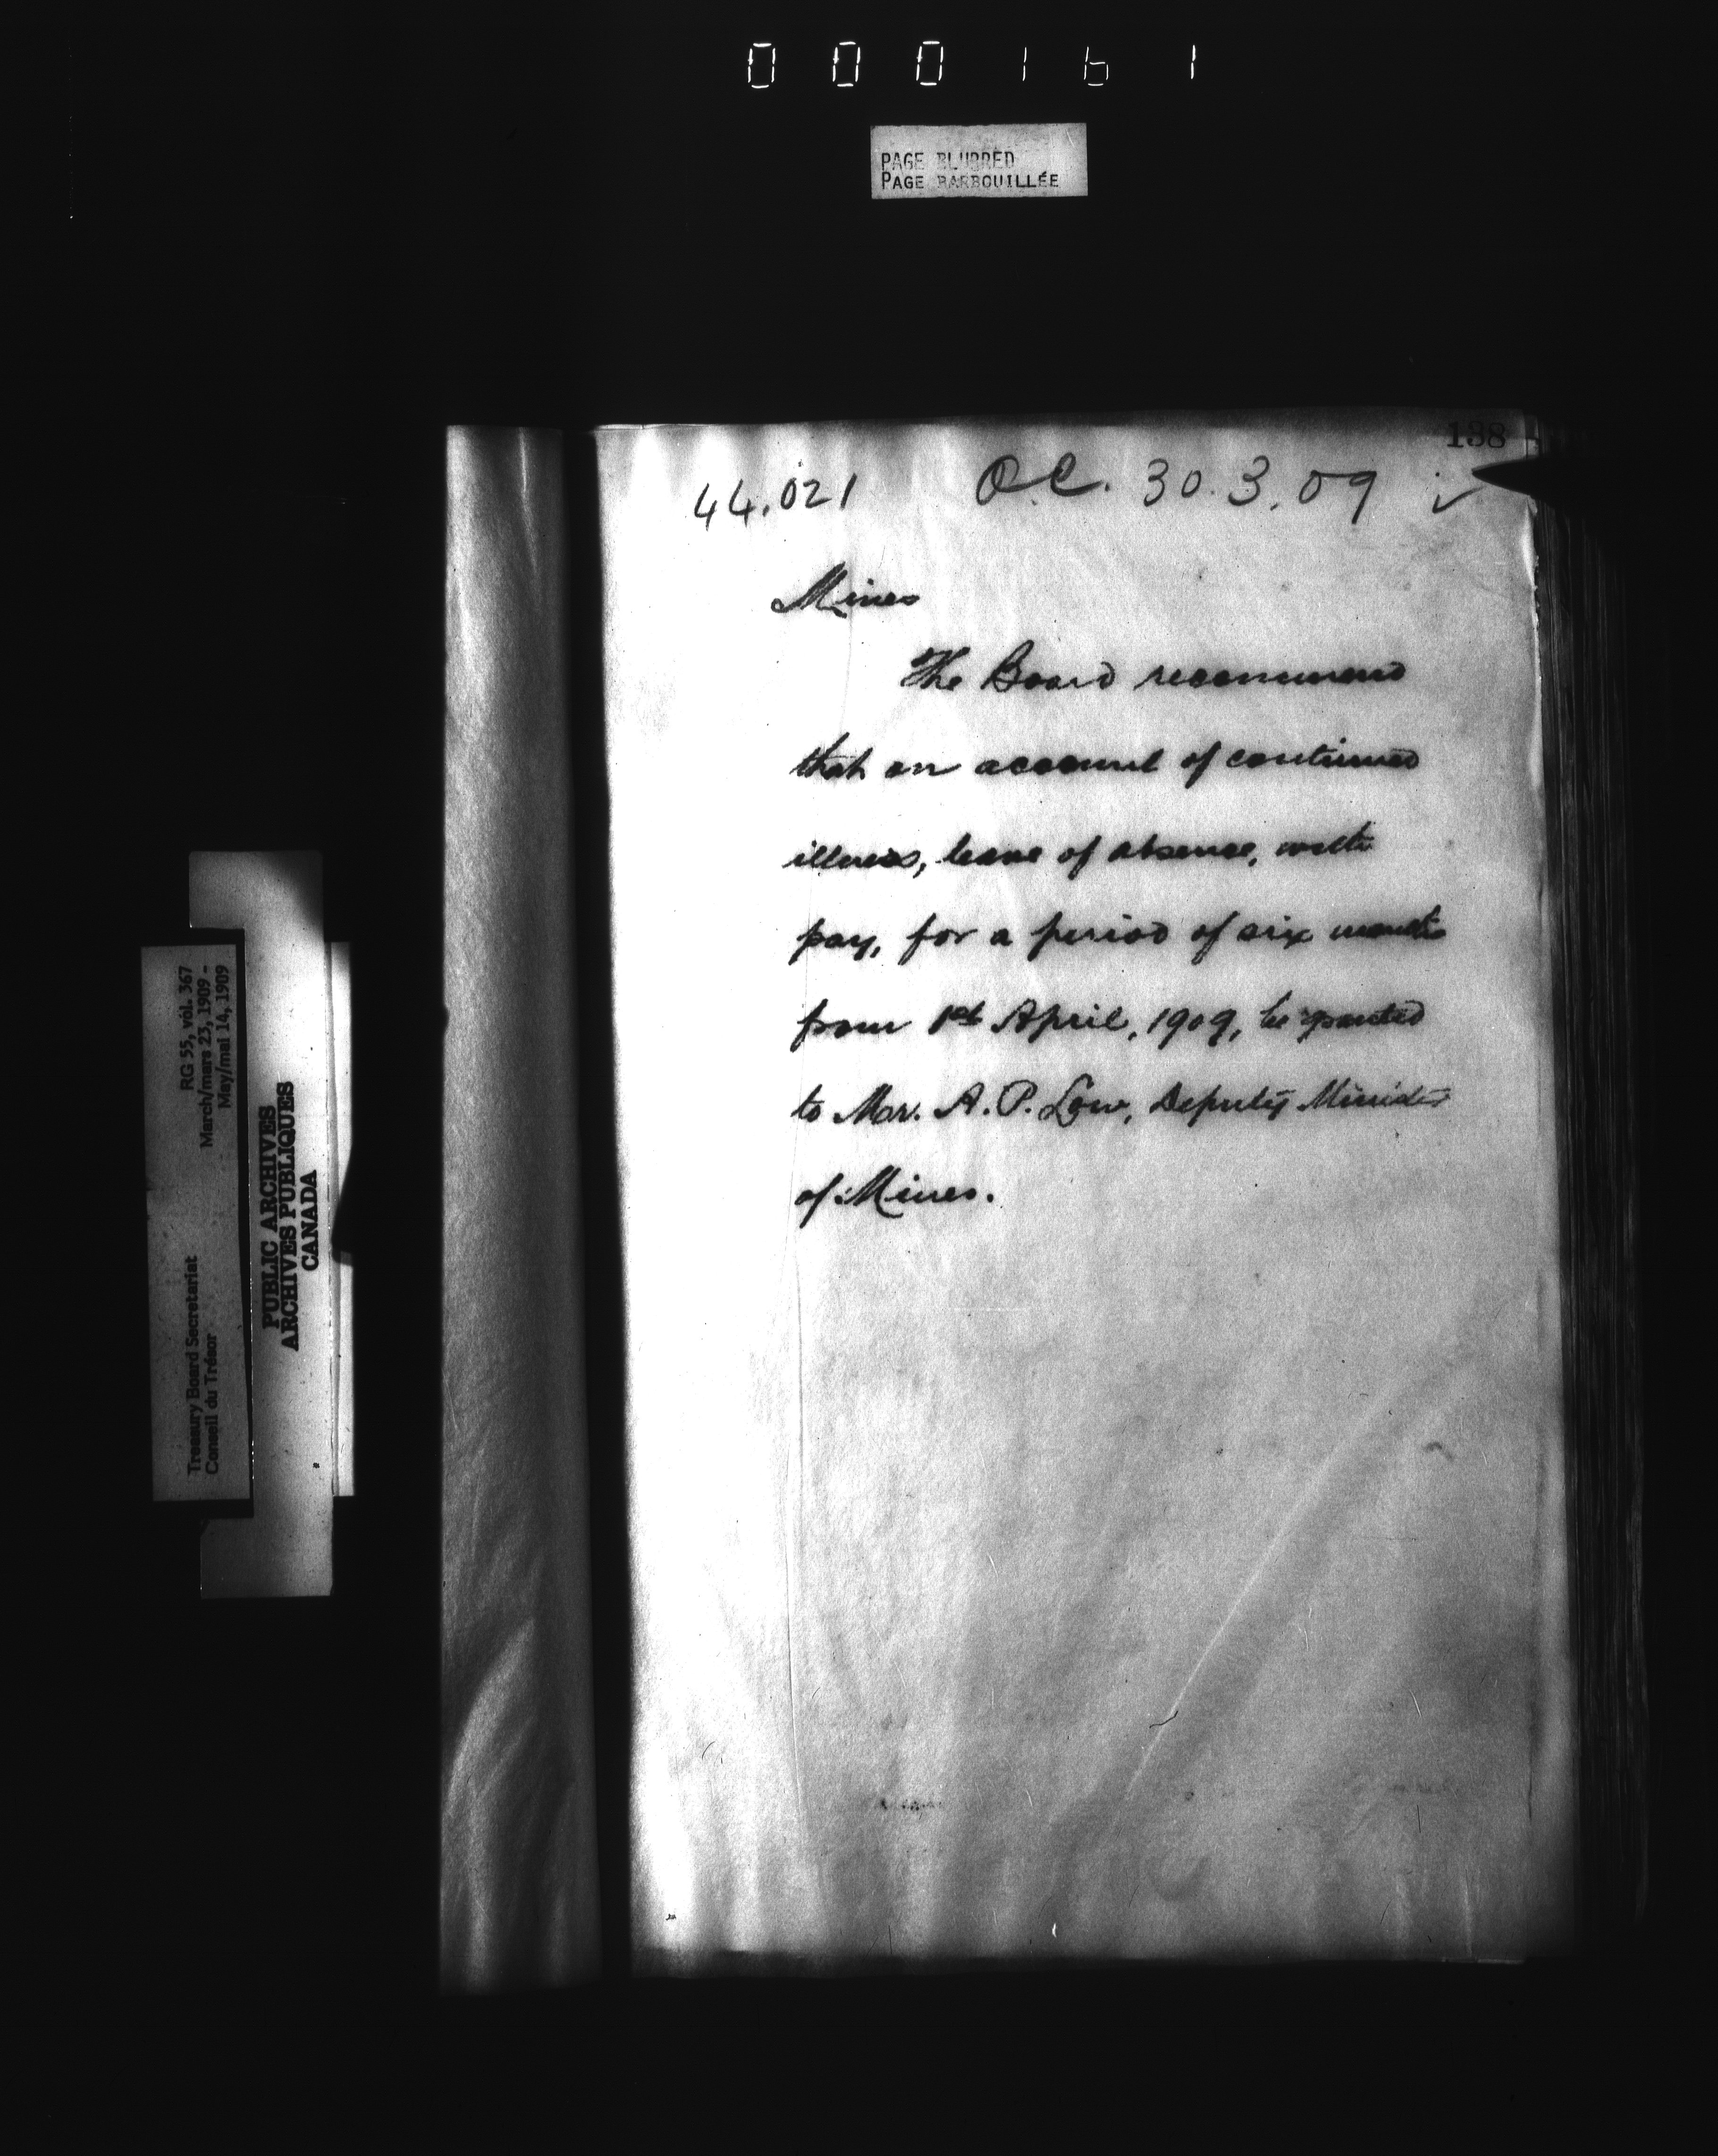 000161
PAGE BLURRED
PAGE BARBOUILLÉE
138
44.021 O.C. 30.3.09 ✓
Mines
The Board recommend
that on account of continued
illness, leave of absence, with
pay, for a period of six months
from 1st April, 1909, be granted
to Mr. A. P. Low, Deputy Minister
of Mines.
Treasury Board Secretariat RG 55, vol. 367
Conseil du Trésor March/mars 23, 1909 -
May/mai 14, 1909
PUBLIC ARCHIVES
ARCHIVES PUBLIQUES
CANADA